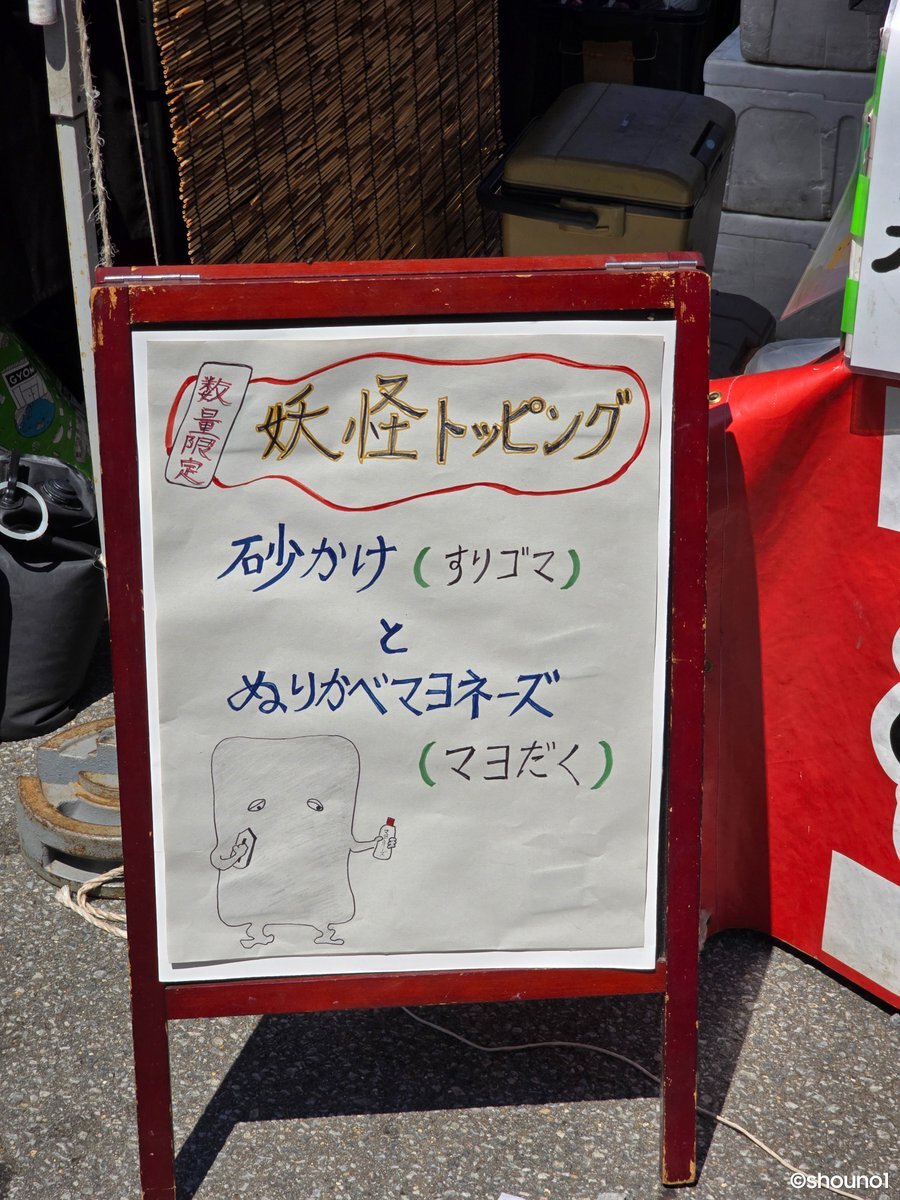 数量限定
妖怪トッピング
砂かけ(すりゴマ)
と
ぬりかべマヨネーズ
(マヨだく)
GYOM
©shouno1